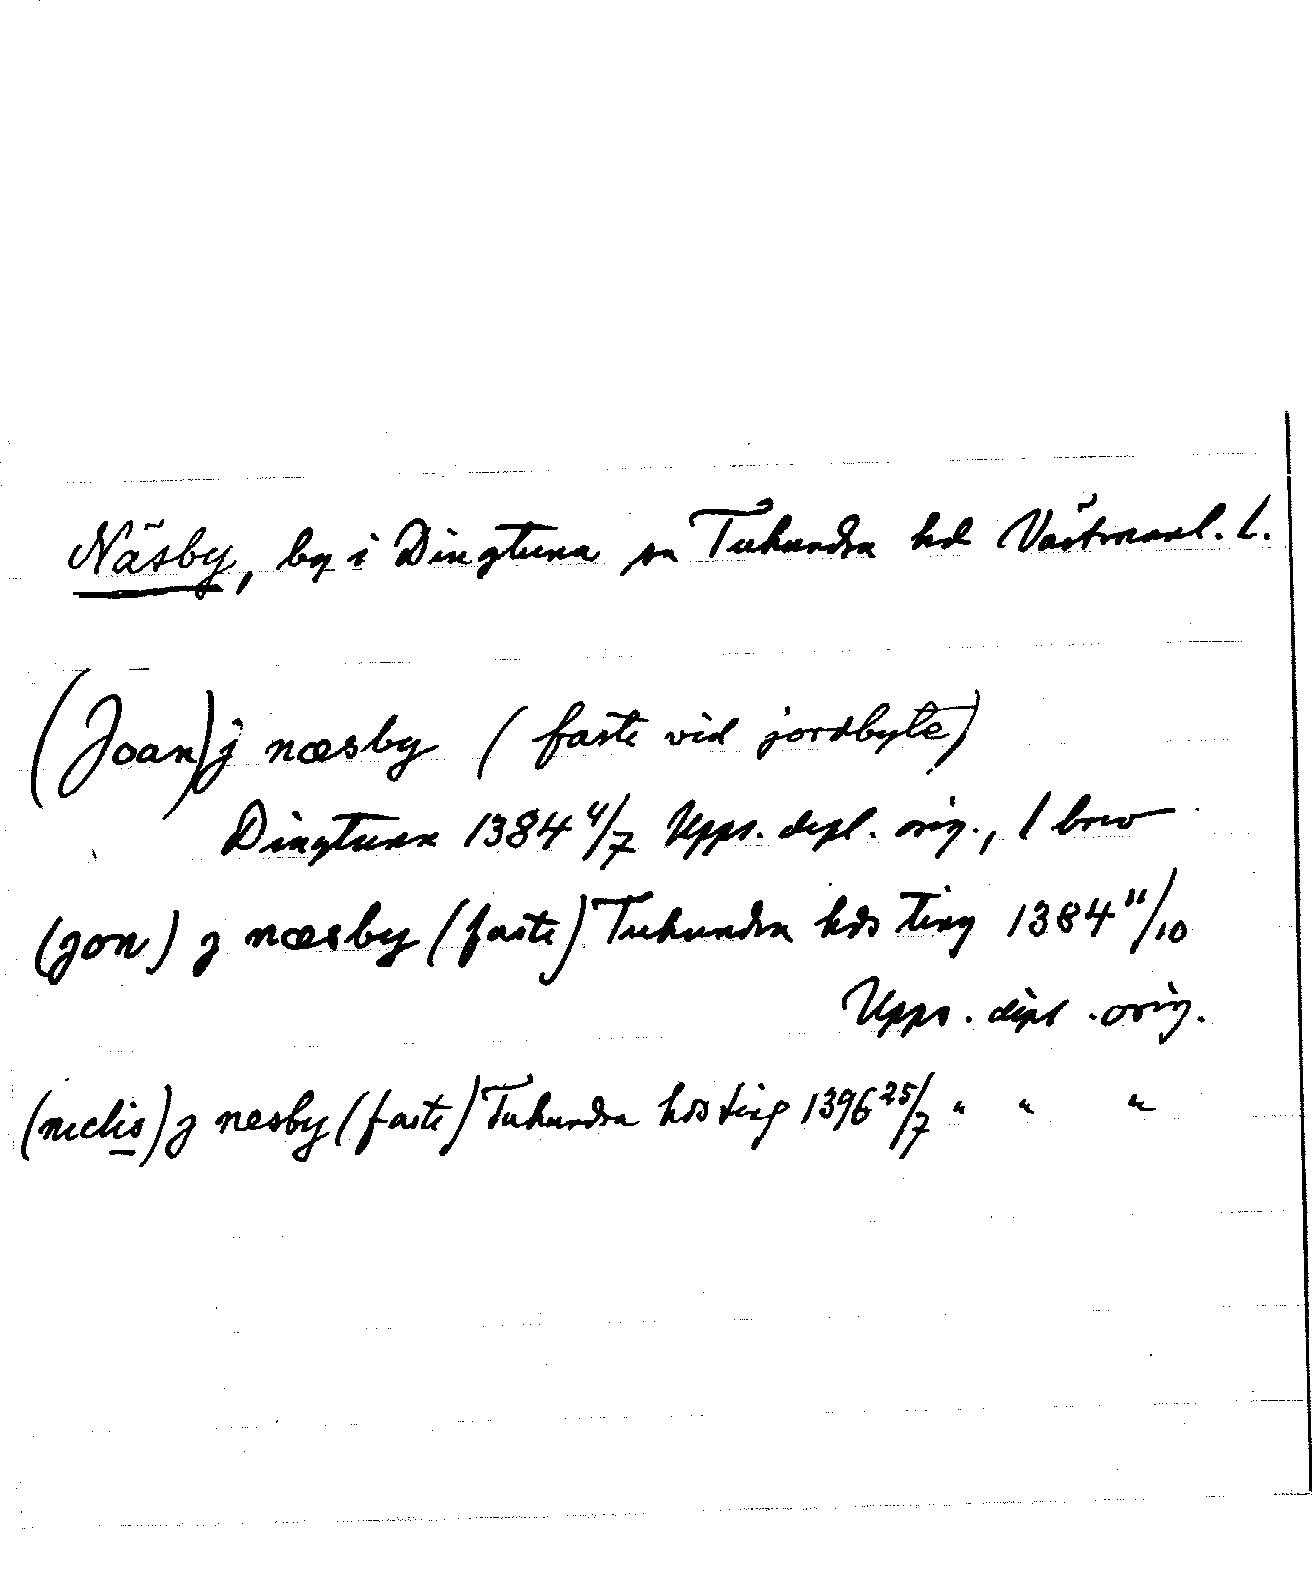 Näsby, by i Dingtuna sn Tuhundra hd Västmanl. l.
(Joan) j næsby (faste vid jordbyte)
Dingtuna 1384 4/7 Upps. dipl. orig., 1 brev
(jon) j næsby (faste) Tuhundra hds ting 1384 11/10
Upps. dipl. orig.
(niclis) j næsby (faste) Tuhundra hds ting 1396 25/7 " " "